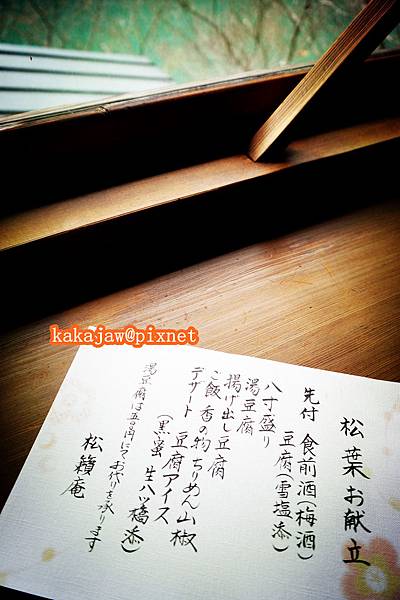 松葉お献立
先付 食前酒(梅酒)
豆腐(雪塩添)
八寸盛り
湯豆腐
揚げ出し豆腐
ご飯 香の物 ちりめん山椒
デザート 豆腐アイス
(黒蜜 生八ツ橋添)
湯豆腐は五百円にてお代りを承ります
松籟庵
kakajaw@pixnet